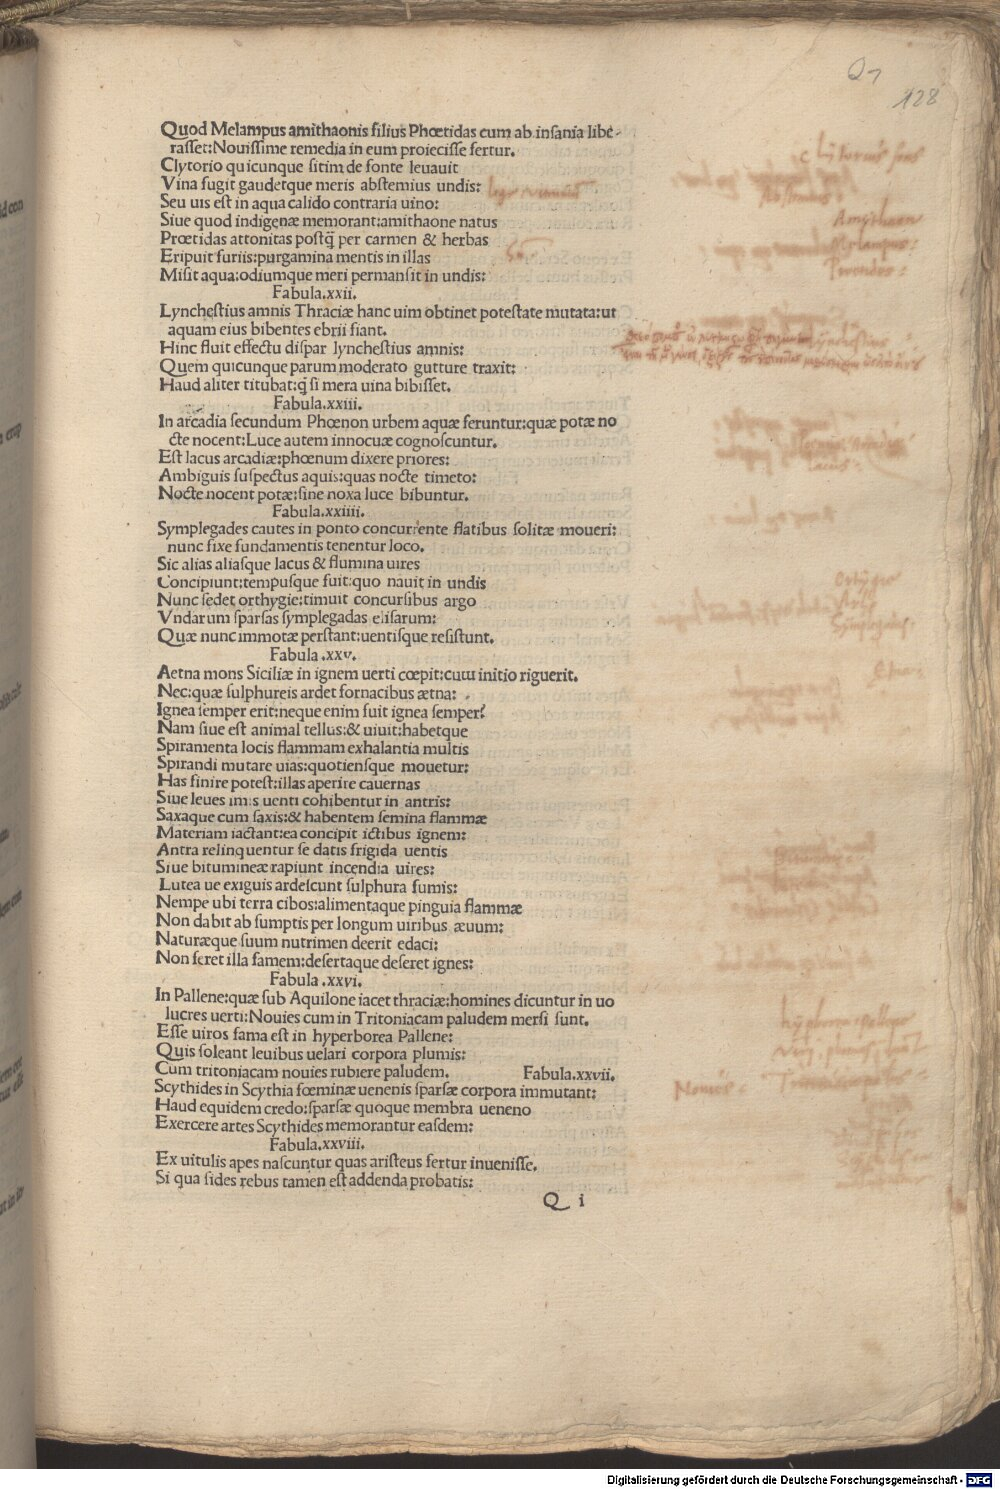 Q1
128
Quod Melampus amithaonis filius Phœtidas cum ab insania libe-
rasset:Nouissime remedia in eum proiecisse fertur.
Clytorio quicunque sitim de fonte leuauit
Vina fugit gaudetque meris abstemius undis:
Seu uis est in aqua calido contraria uino:
Siue quod indigenæ memorant:amithaone natus
Prœtidas attonitas postq̃ per carmen & herbas
Eripuit furiis:purgamina mentis in illas
Misit aqua:odiumque meri permansit in undis:
Fabula.xxii.
Lynchestius amnis Thraciæ hanc uim obtinet potestate mutata:ut
aquam eius bibentes ebrii fiant.
Hinc fluit effectu dispar lynchestius amnis:
Quem quicunque parum moderato gutture traxit:
Haud aliter titubat:q̃ si mera uina bibisset.
Fabula.xxiii.
In arcadia secundum Phœnon urbem aquæ feruntur:quæ potæ no
cte nocent:Luce autem innocuæ cognoscuntur.
Est lacus arcadiæ:phœnum dixere priores:
Ambiguis suspectus aquis:quas nocte timeto:
Nocte nocent potæ:sine noxa luce bibuntur.
Fabula.xxiiii.
Symplegades cautes in ponto concurrente flatibus solitæ moueri:
nunc fixe fundamentis tenentur loco.
Sic alias aliasque lacus & flumina uires
Concipiunt:tempusque fuit:quo nauit in undis
Nunc sedet orthygie:timuit concursibus argo
Vndarum sparsas symplegadas elisarum:
Quæ nunc immotæ perstant:uentisque resistunt.
Fabula.xxv.
Aetna mons Siciliæ in ignem uerti cœpit:cum initio riguerit.
Nec:quæ sulphureis ardet fornacibus ætna:
Ignea semper erit:neque enim fuit ignea semper:
Nam siue est animal tellus:& uiuit:habetque
Spiramenta locis flammam exhalantia multis
Spirandi mutare uias:quotiensque mouetur:
Has finire potest:illas aperire cauernas
Siue leues imis uenti cohibentur in antris:
Saxaque cum saxis:& habentem semina flammæ
Materiam iactant:ea concipit ictibus ignem:
Antra relinquentur se datis frigida uentis
Siue bitumineæ rapiunt incendia uires:
Lutea ue exiguis ardescunt sulphura fumis:
Nempe ubi terra cibos:alimentaque pinguia flammæ
Non dabit ab sumptis per longum uiribus æuum:
Naturæque suum nutrimen deerit edaci:
Non feret illa famem:desertaque deseret ignes:
Fabula.xxvi.
In Pallene:quæ sub Aquilone iacet thraciæ:homines dicuntur in uo
lucres uerti:Nouies cum in Tritoniacam paludem mersi sunt.
Esse uiros fama est in hyperborea Pallene:
Quis soleant leuibus uelari corpora plumis:
Cum tritoniacam nouies rubiere paludem. Fabula.xxvii.
Scythides in Scythia fœminæ uenenis sparsæ corpora immutant:
Haud equidem credo:sparsæ quoque membra ueneno
Exercere artes Scythides memorantur easdem:
Fabula.xxviii.
Ex uitulis apes nascuntur quas aristeus fertur inuenisse.
Si qua fides rebus tamen est addenda probatis:
Q i
Clytorius fons
Amythaon
Melampus:
Symplegades:
Etna:
Digitalisierung gefördert durch die Deutsche Forschungsgemeinschaft - DFG